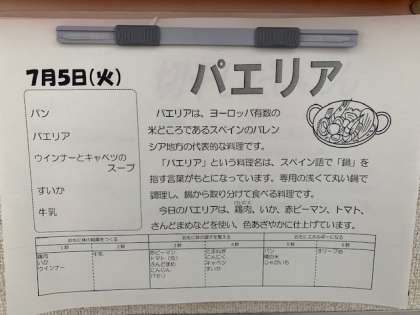 7月5日(火)
パエリア
パン
パエリア
ウインナーとキャベツの
スープ
すいか
牛乳
パエリアは、ヨーロッパ有数の
米どころであるスペインのバレン
シア地方の代表的な料理です。
「パエリア」という料理名は、スペイン語で「鍋」を
指す言葉がもとになっています。専用の浅くて丸い鍋で
調理し、鍋から取り分けて食べる料理です。
今日のパエリアは、鶏肉、いか、赤ピーマン、トマト、
さんどまめなどを使い、色あざやかに仕上げています。
おもに体の組織をつくる
おもに体の調子を整える
おもにエネルギーになる
1群 2群 3群 4群 5群 6群
鶏肉 牛乳 赤ピーマン たまねぎ パン オリーブ油
いか トマト(缶) にんにく 精白米
ウインナー さんどまめ キャベツ じゃがいも
にんじん すいか
パセリ